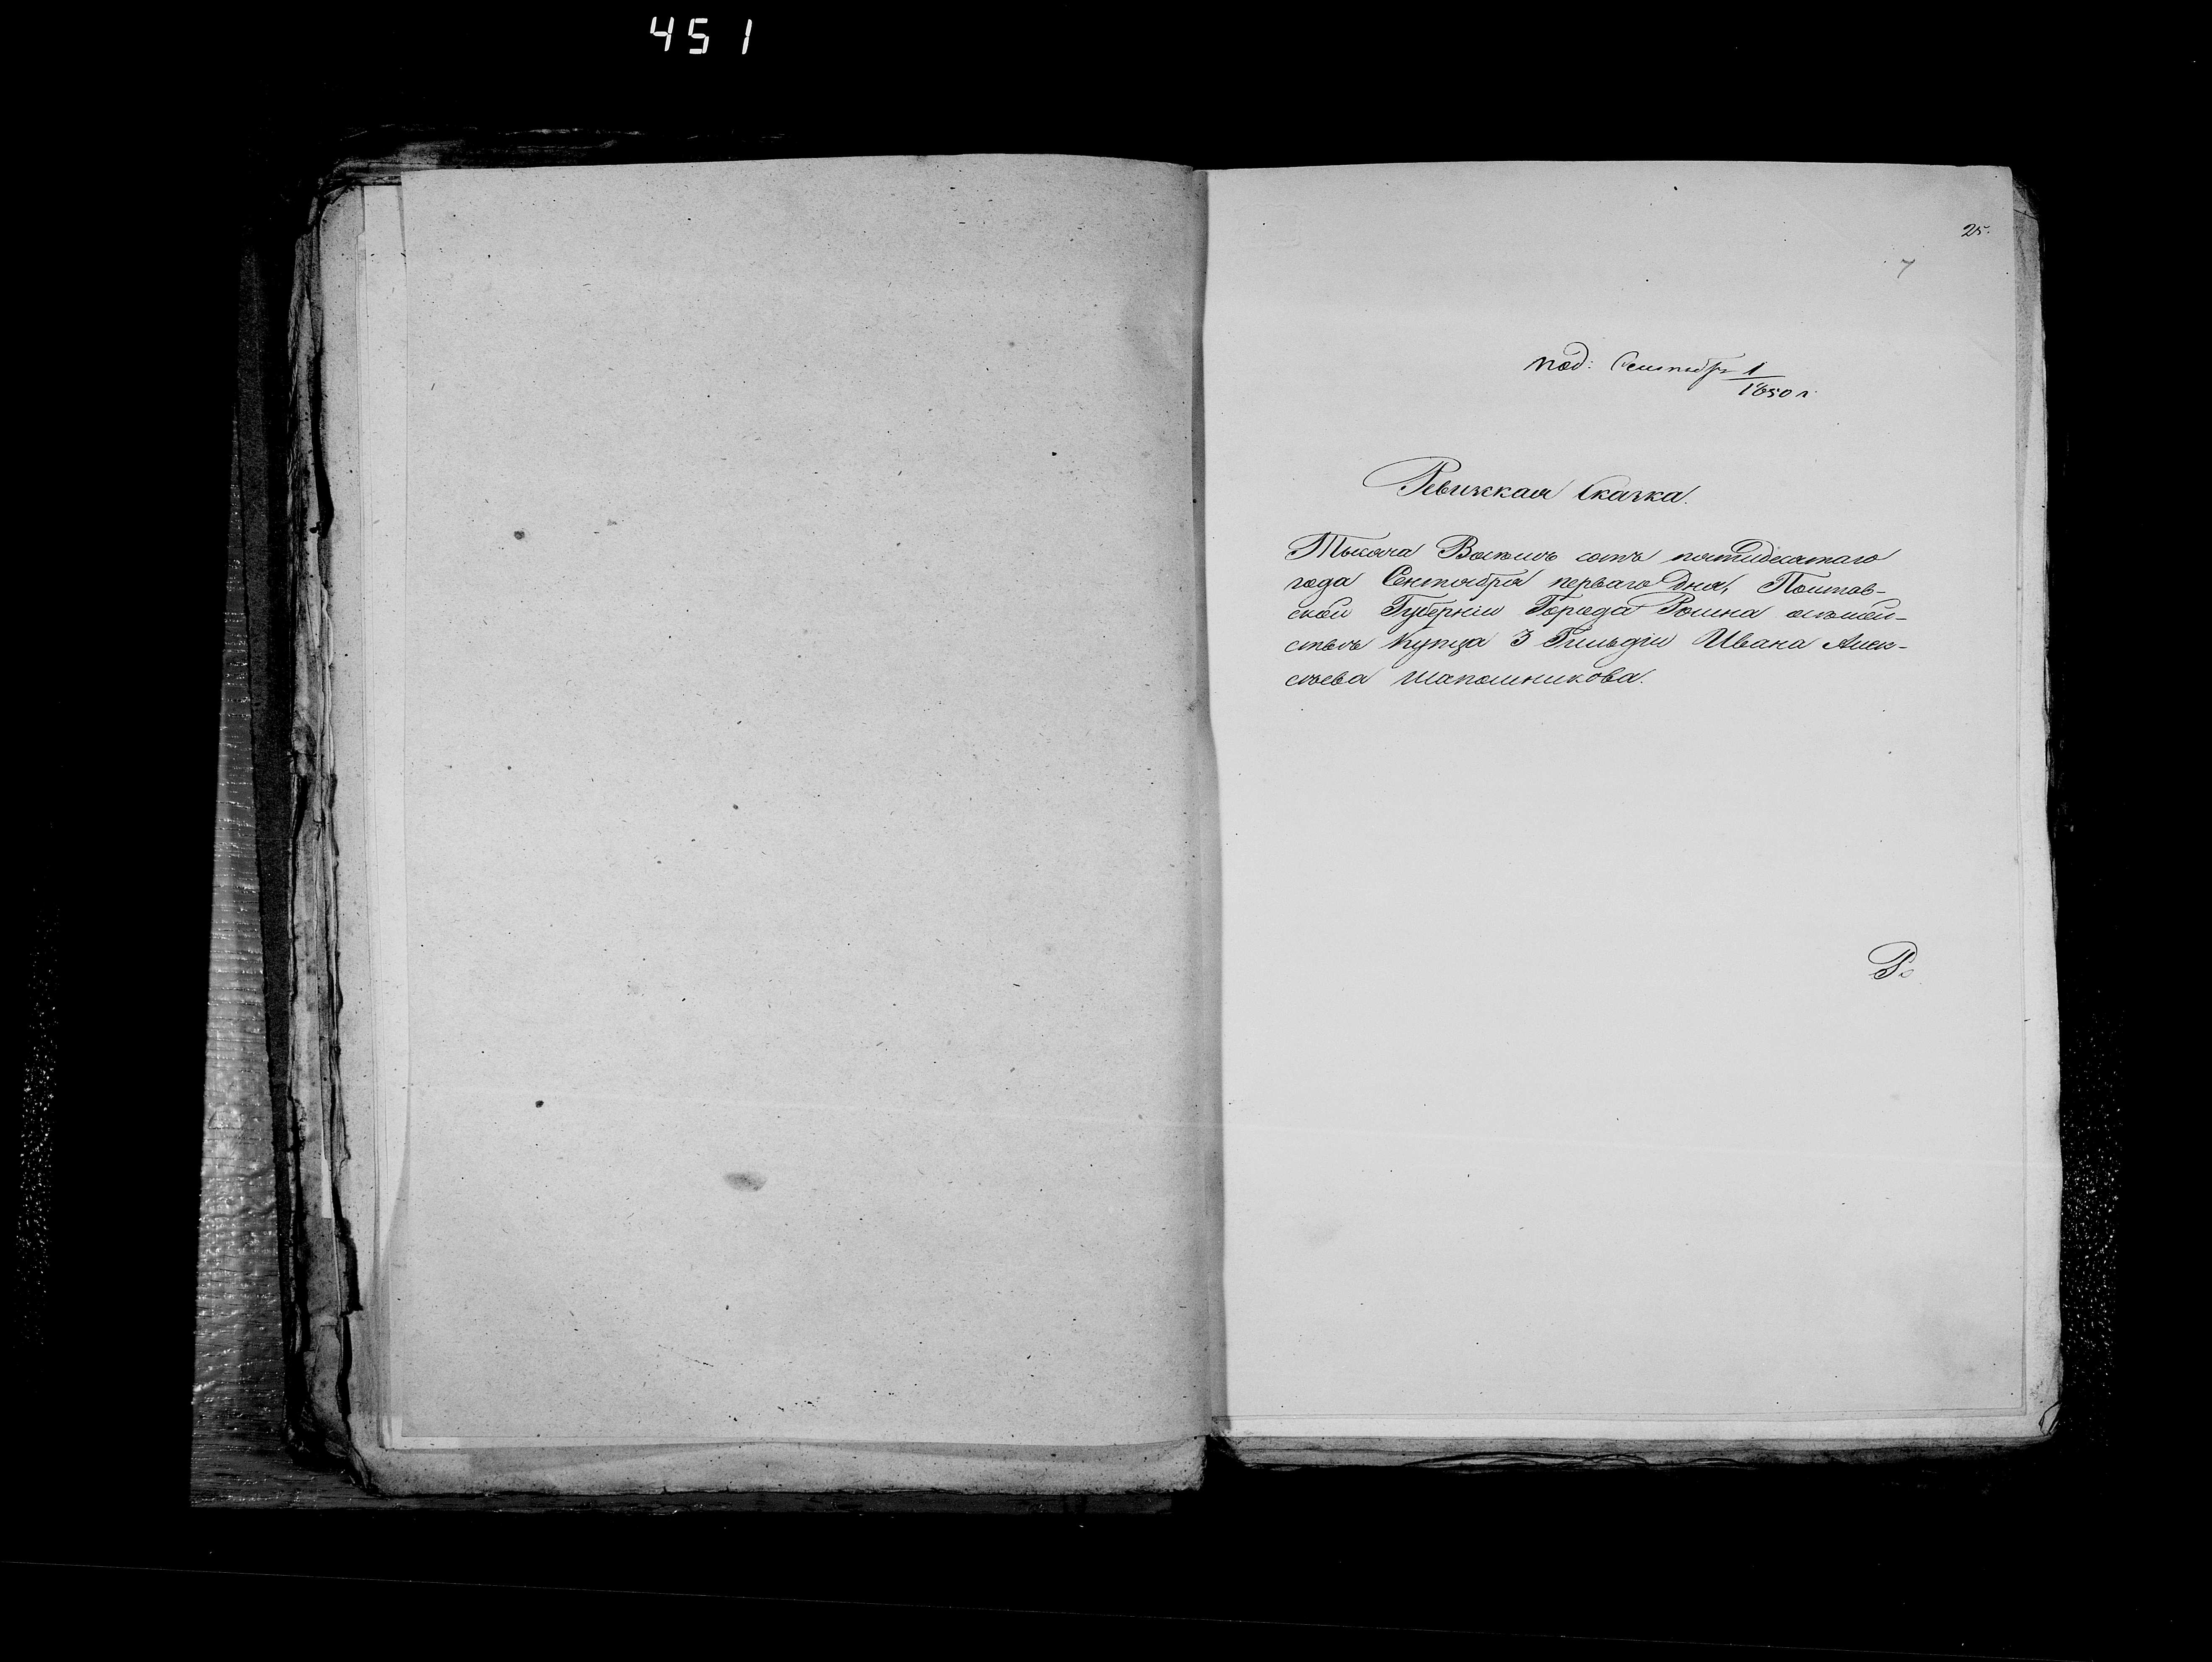 451
25.
7
под: Сентября 1
1850 г.
Ревижская Сказка.
Тысяча Восемь сотъ пятидесятаго
года Сентября перваго Дня, Полтав-
ской Губерніи Города Ромна осемей-
ствѣ Купца 3 Гильдіи Ивана Алек-
сѣева Шапошникова.